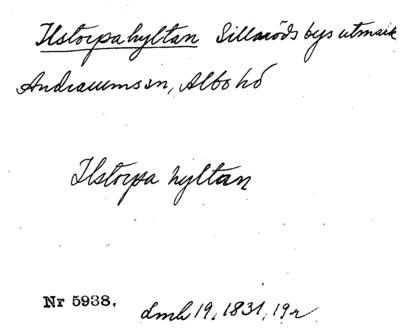 Ilstorpahyltan Sillaröds bys utmark
Andrarums sn, Albo hd
Ilstorpa hyltan
Nr 5938.
Lmk 19, 1831, 19 r